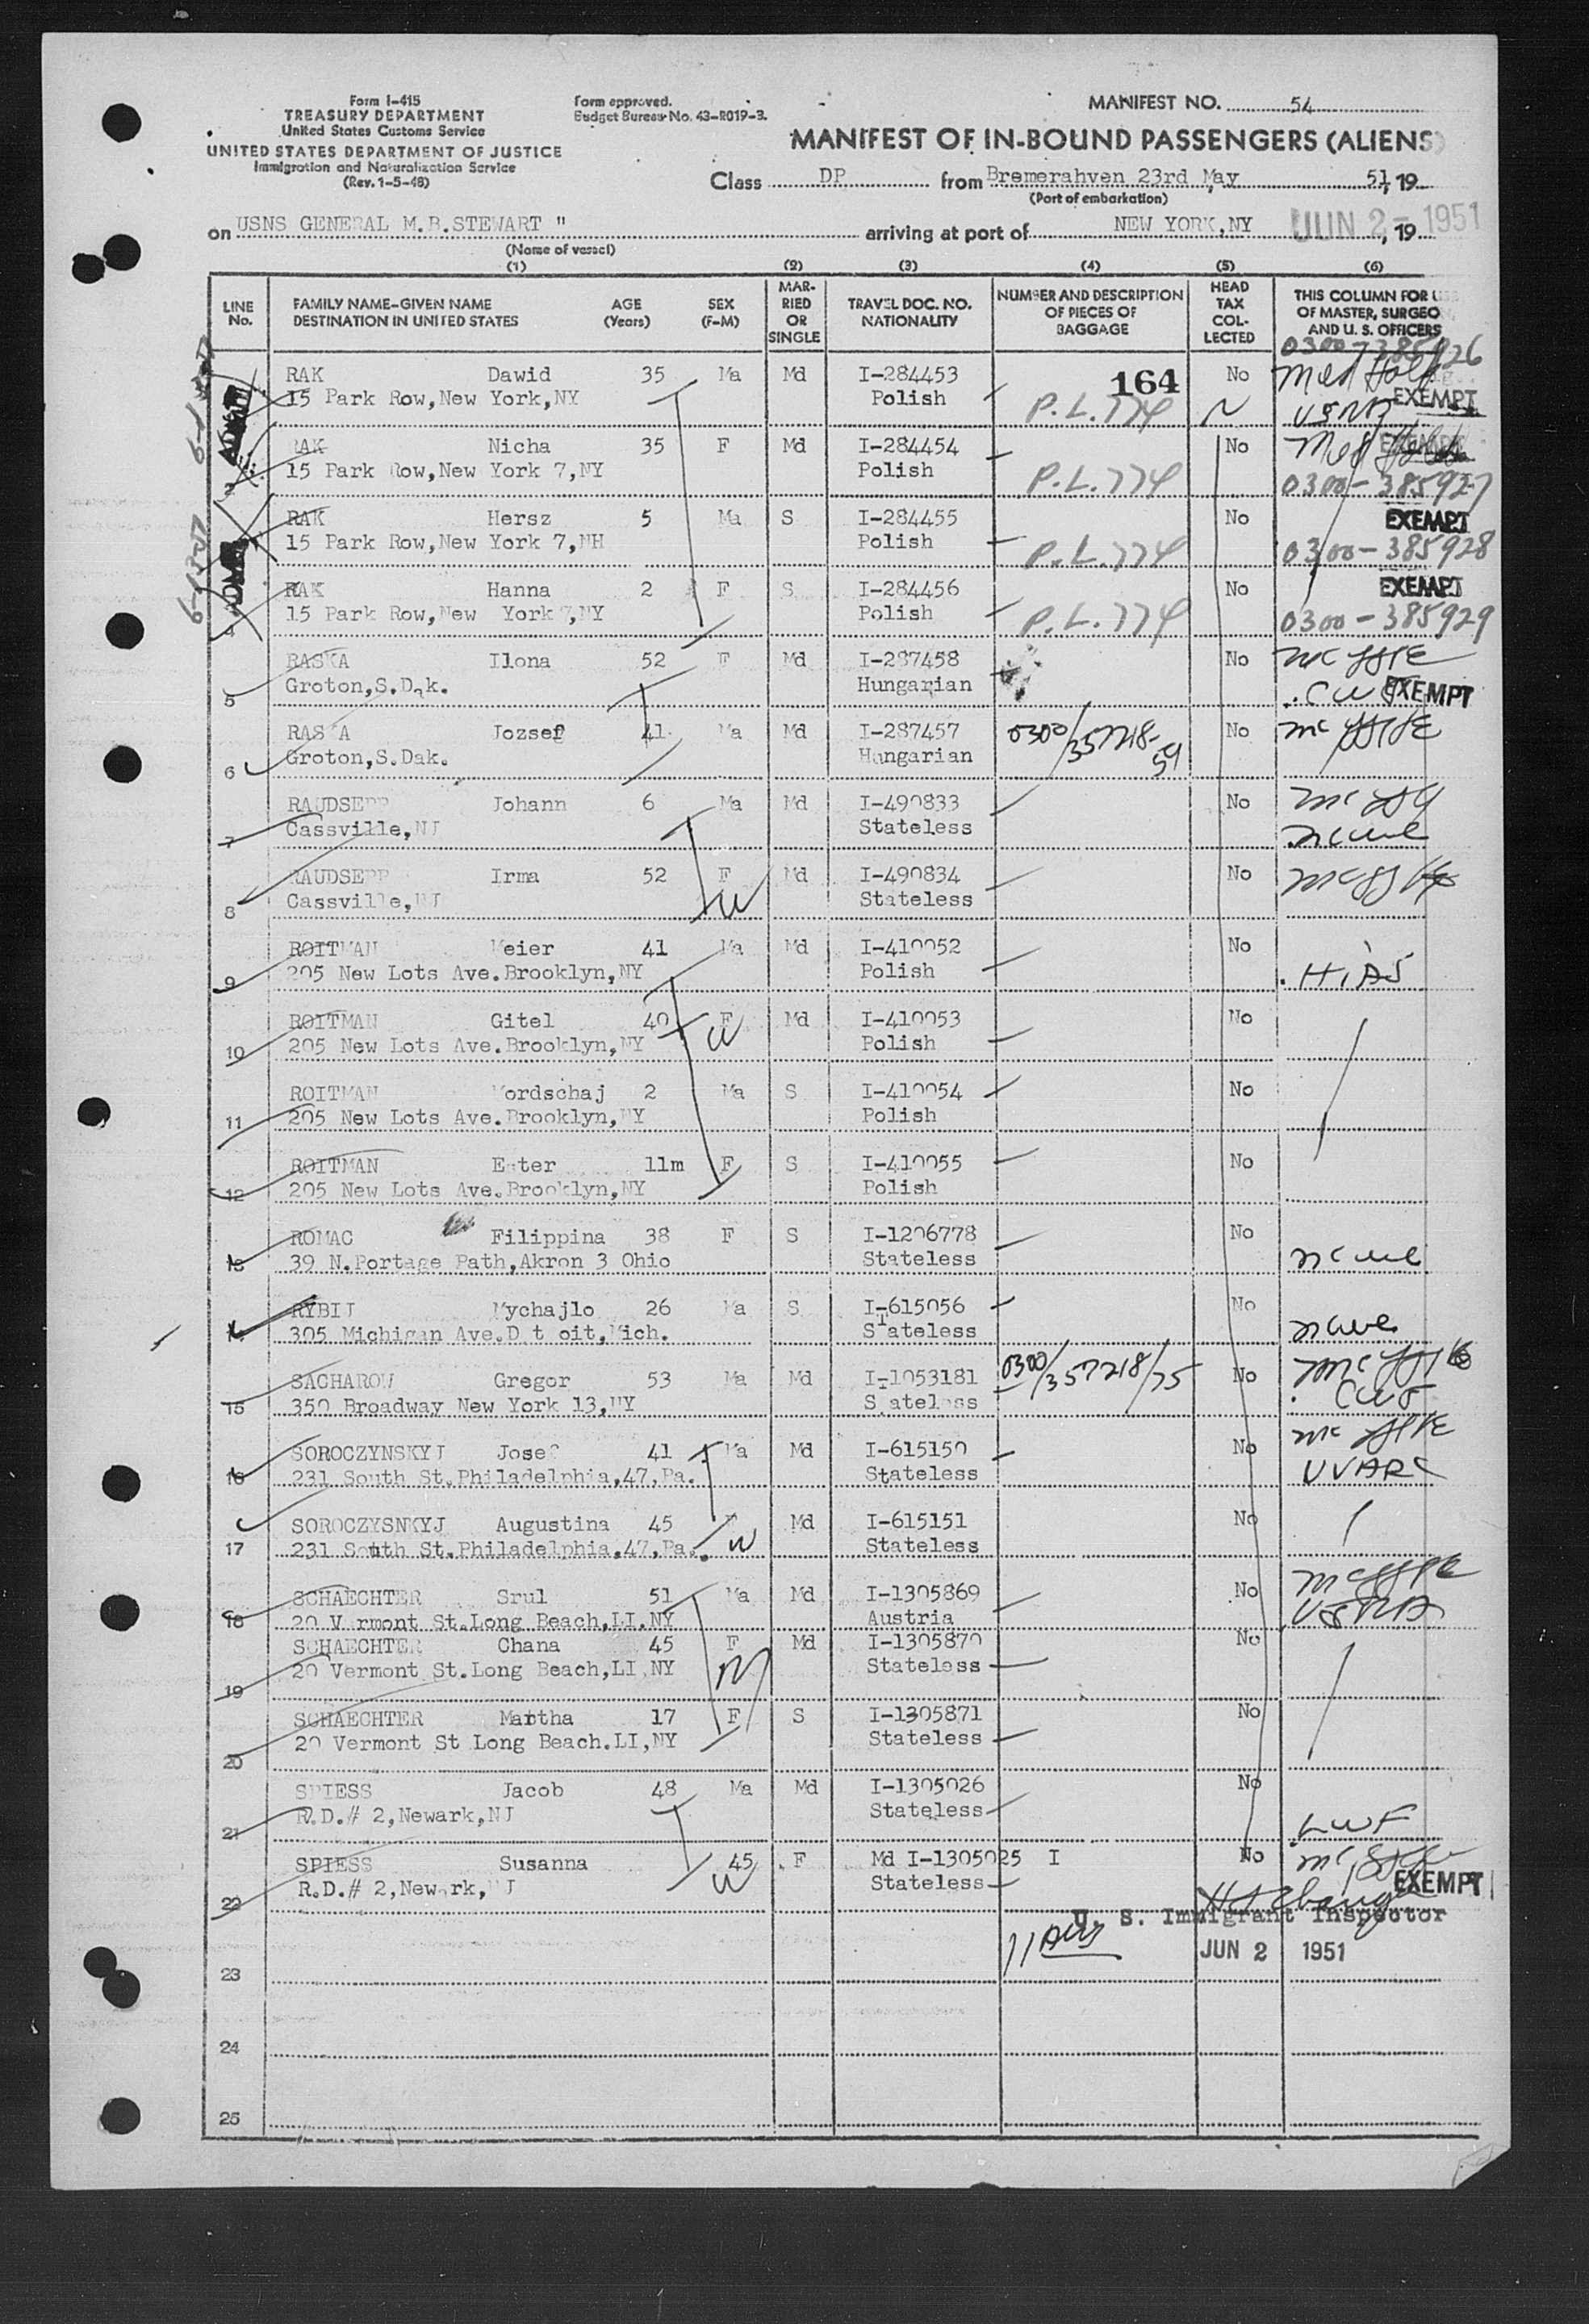 Form I-415
TREASURY DEPARTMENT
United States Customs Service
UNITED STATES DEPARTMENT OF JUSTICE
Immigration and Naturalization Service
(Rev. 1-5-48)
Form approved.
Budget Bureau No. 43-R019-3.
MANIFEST NO. 54
MANIFEST OF IN-BOUND PASSENGERS (ALIENS)
Class DP from Bremerahven 23rd May 51, 19
(Port of embarkation)
on USNS GENERAL M.B.STEWART " arriving at port of NEW YORK,NY JUN 2- 1951, 19
(Name of vessel)
(1) (2) (3) (4) (5) (6)
LINE No. FAMILY NAME-GIVEN NAME DESTINATION IN UNITED STATES AGE (Years) SEX (F-M) MARRIED OR SINGLE TRAVEL DOC. NO. NATIONALITY NUMBER AND DESCRIPTION OF PIECES OF BAGGAGE HEAD TAX COLLECTED THIS COLUMN FOR USE OF MASTER, SURGEON, AND U. S. OFFICERS
0300-385926
RAK Dawid 35 Ma Md I-284453 164 No Med Hold
15 Park Row,New York,NY Polish P.L.774 USNA EXEMPT
RAK Nicha 35 F Md I-284454 No Med Hold
15 Park Row,New York 7,NY Polish P.L.774 0300-385927
RAK Hersz 5 Ma S I-284455 No EXEMPT
15 Park Row,New York 7,NH Polish P.L.774 0300-385928
RAK Hanna 2 F S I-284456 No EXEMPT
4 15 Park Row,New York 7,NY Polish P.L.774 0300-385929
RASKA Ilona 52 F Md I-287458 No
5 Groton,S.Dak. Hungarian EXEMPT
RASKA Jozsef 41 Ma Md I-287457 0300/357218-54 No
6 Groton,S.Dak. Hungarian
RAUDSEPP Johann 6 Ma Md I-490833 No
7 Cassville,NJ Stateless
RAUDSEPP Irma 52 F Md I-490834 No
8 Cassville,NJ Stateless
ROITMAN Meier 41 Ma Md I-410052 No
9 205 New Lots Ave.Brooklyn,NY Polish HIAS
ROITMAN Gitel 40 F Md I-410053 No
10 205 New Lots Ave.Brooklyn,NY Polish
ROITMAN Mordschaj 2 Ma S I-410054 No
11 205 New Lots Ave.Brooklyn,NY Polish
ROITMAN Ester 11m F S I-410055 No
12 205 New Lots Ave.Brooklyn,NY Polish
ROMAC Filippina 38 F S I-1206778 No
13 39 N.Portage Path,Akron 3 Ohio Stateless
RYBIJ Mychajlo 26 Ma S I-615056 No
14 305 Michigan Ave.D t oit,Mich. Stateless
SACHAROW Gregor 53 Ma Md I-1053181 0300/357218/75 No
15 350 Broadway New York 13,NY Stateless
SOROCZYNSKYJ Josef 41 Ma Md I-615150 No
16 231 South St.Philadelphia,47,Pa. Stateless
SOROCZYSNKYJ Augustina 45 Md I-615151 No
17 231 South St.Philadelphia,47,Pa. W Stateless
SCHAECHTER Srul 51 Ma Md I-1305869 No
18 20 Vermont St.Long Beach,LI,NY Austria USNA
SCHAECHTER Chana 45 F Md I-1305870 No
19 20 Vermont St.Long Beach,LI,NY Stateless
SCHAECHTER Martha 17 F S I-1305871 No
20 20 Vermont St Long Beach.LI,NY Stateless
SPIESS Jacob 48 Ma Md I-1305026 No
21 R.D.# 2,Newark,NJ Stateless LWF
SPIESS Susanna 45 F Md I-1305025 I No
22 R.D.# 2,Newark,NJ W Stateless EXEMPT
U. S. Immigrant Inspector
23 JUN 2 1951
24
25